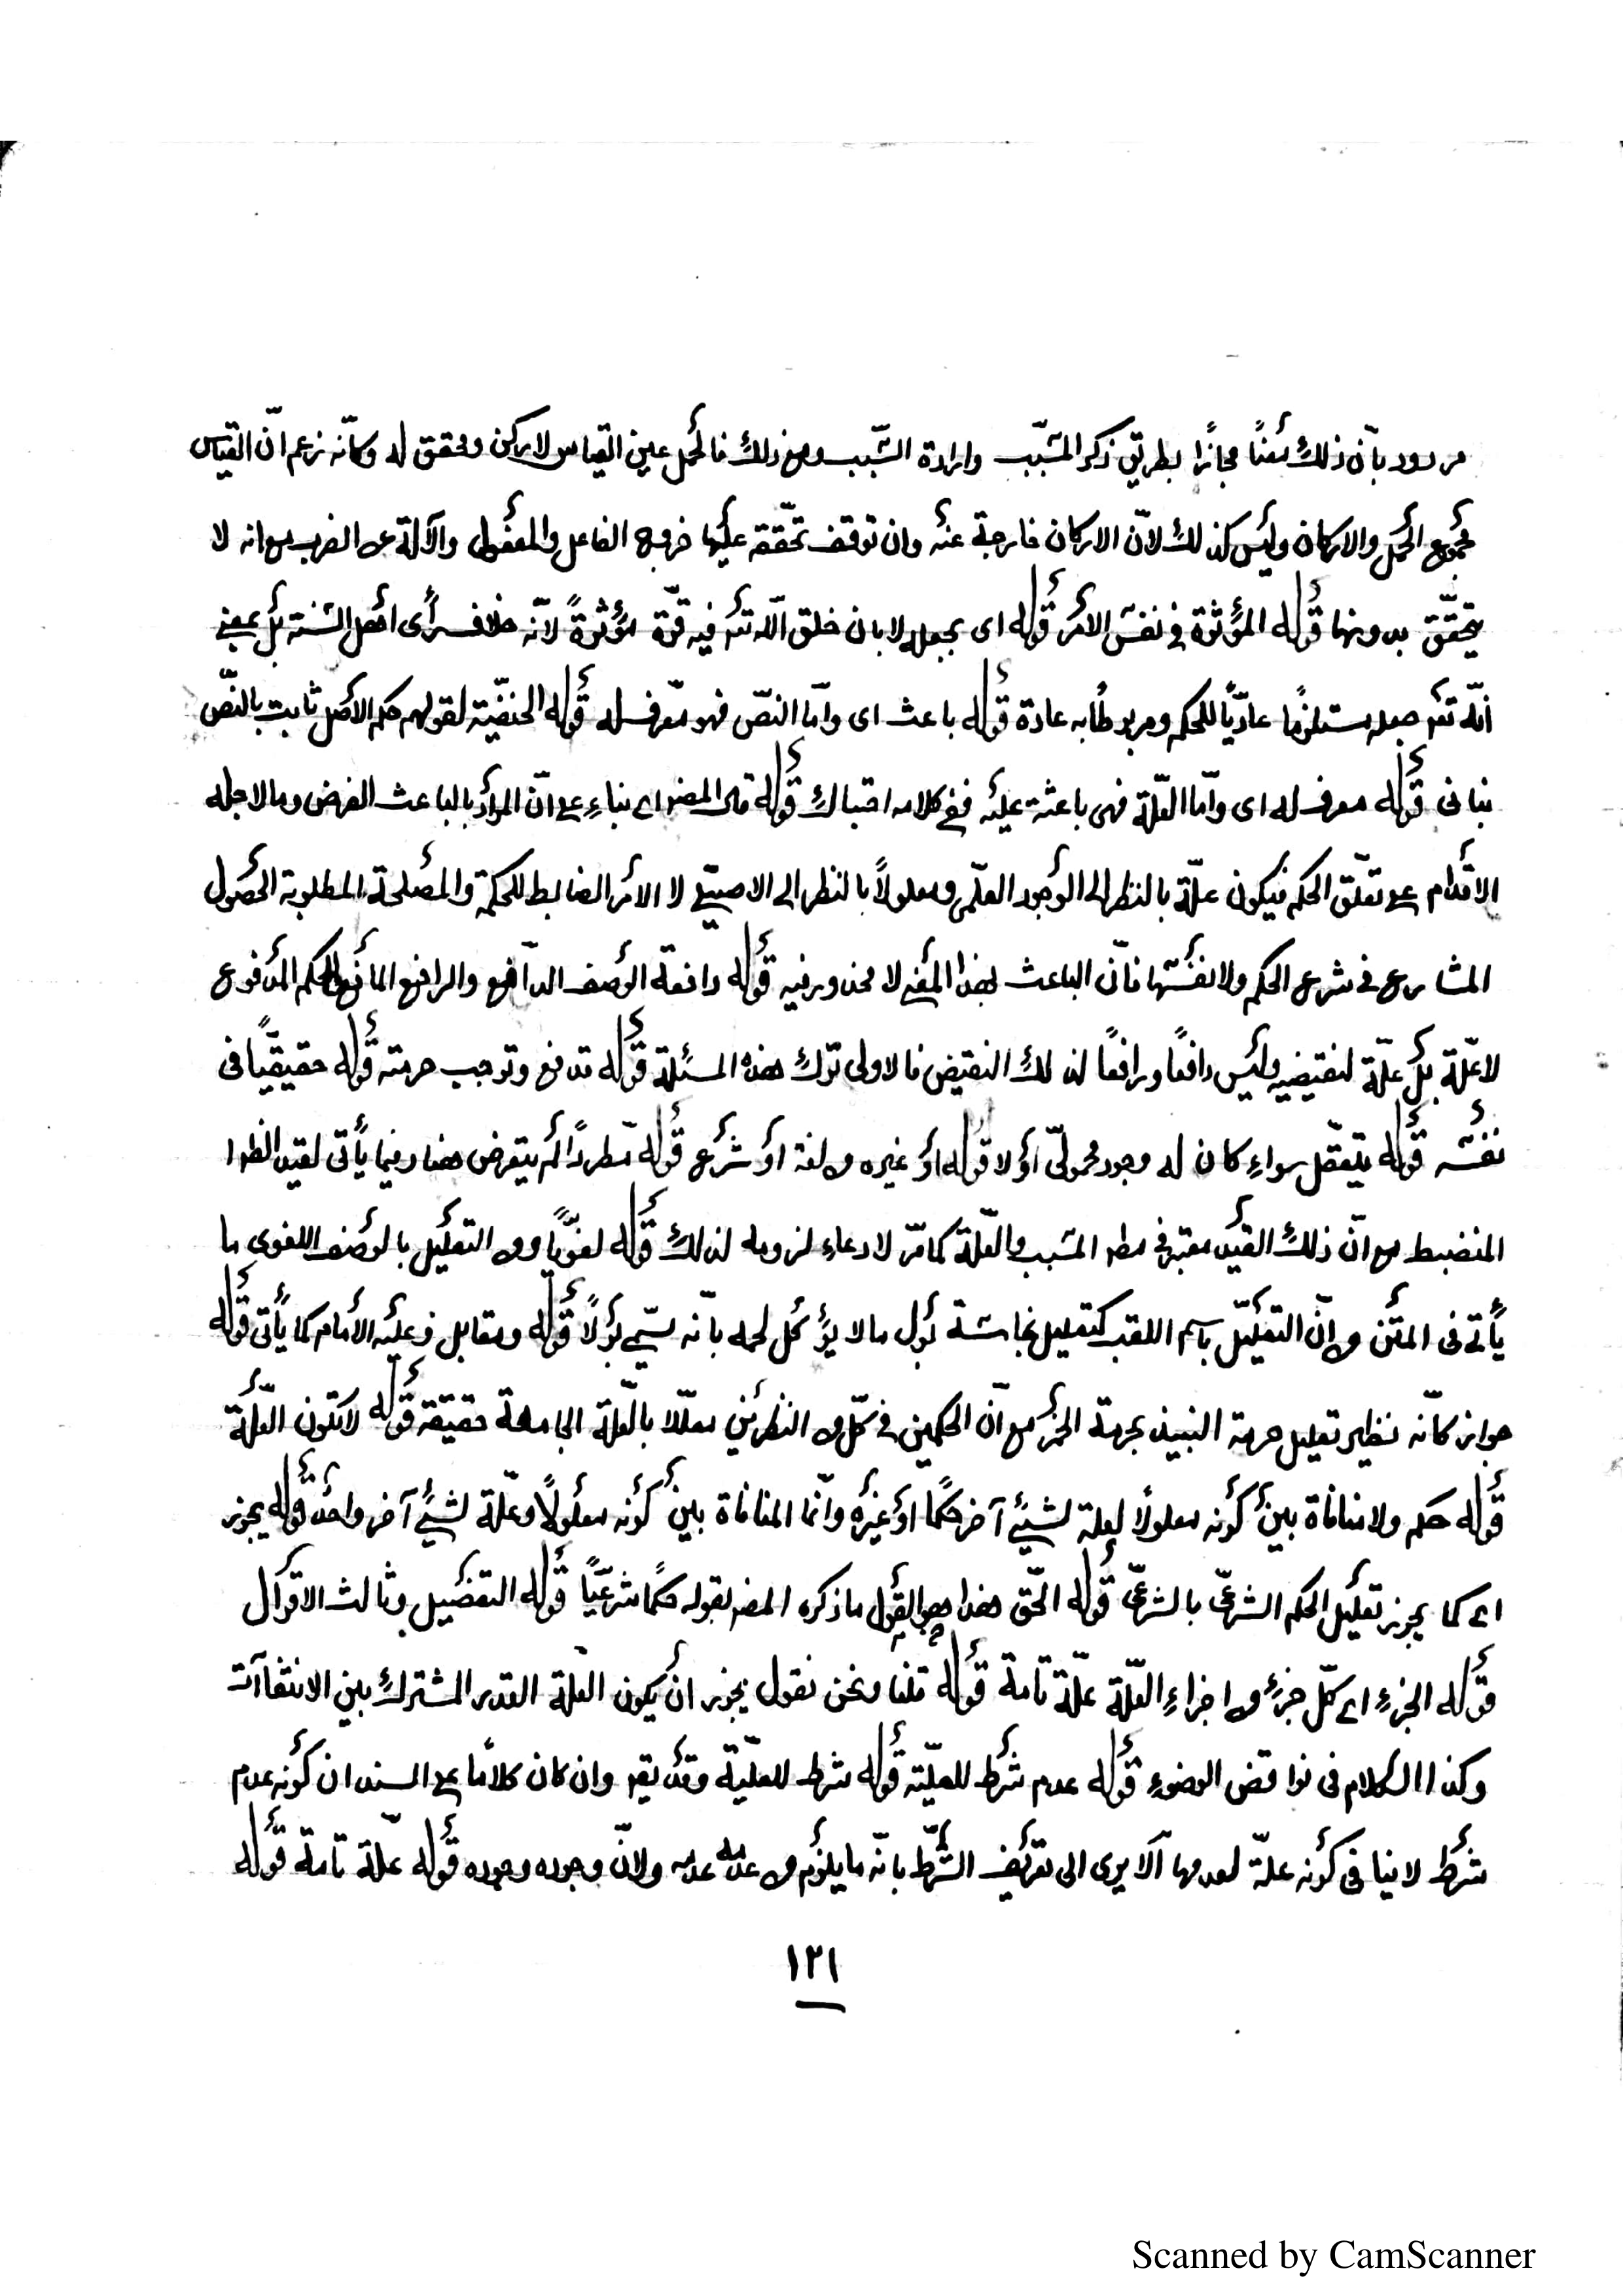 مردود بأن ذلك معناً مجازاً بطريق ذكر المسبّب وارادة السّبب ومع ذلك فالحمل عين القياس لا ركن ومحقق له وكأنّه زعم انّ القياس
مجموع الحمل والاركان وليس كذلك لانّ الاركان خارجة عنه وان توقف تحقّقه عليها خروج الفاعل والمفعول والآلة عن الضرب مع انه لا
يتحقّق بدونها قوله المؤثرة في نفس الامر قوله اى بجعله لا بان خلق اللّه تعـ فيه قوّة مؤثرةً لانّه خلاف رأى اهل السّنة بل بمعنى
انّه تعـ جعله مستلزماً عاديّاً للحكم ومربوطاً به عادة قوله باعث اى وامّا النصّ فهو معّرف له قوله الحنفيّة لقولهم حكم الاصل ثابت بالنّص
بنا نى قوله معرف له اى وامّا العلّة فهى باعثة عليه ففى كلامه احتباك قوله قال المصـ اى بناءِ على انّ المراد بالباعث الغرض وما لاجله
الاقدام على تعلّق الحكم فيكون علّة بالنظر الى الوجود العلمى ومعلولاً بالنظر الى لا الامر الضابط للحكمة والمصلحة المطلوبة الحصول
المشارع فى شرع الحكم ولا نفسها فانّ الباعث بهذا المعنى لا محذور فيه قوله دافعة الوصف الدّافع والرافع المانع للحكم المدفوع
لا علّة بل علّة لنقيضه وليس دافعاً ورافعاً لذلك النقيض فالاولى ترك هذه المسئلة قوله تدفع وتوجب حرمته قوله حقيقيّاً فى
نفسه قوله يتعقّل سواءِ كان له وجود محمولىّ او لا قوله او غيره من لغة او شرع قوله مطرداً لم يتعرض هنا وفيما يأتى لقيد الظهـ
المنضبط مع انّ ذلك القيد معتبر فى مطـ السبب والعلّة كما مّر لادعاءِ لزومه لذلك قوله لغويّاً ومن التعليل بالوصف اللغوى ما
يأتى فى المتن من انّ التعليّل باسم اللقب كتعليل نجاسة بول ما لا يؤكل لحمه بانّه يسّمى بولاً قوله ومقابل وعليه الأمام كما يأتى قوله
جواز كانّه نظير تعليل حرمة النبيذ بحرمة الخمر مع انّ الحكمين فى كلّ من النظرين معلّلا بالعّلة الجامعة حقيقة قوله لا تكون العلّة
قوله حكم ولا منافاة بين كونه معلولا لعلة لشيئ آخر حكماً او غيره وانّما المنافاة بين كونه معلولاً وعلّة لشيئ آخر واحد قوله يجوز
اى كما يجوز تعليل الحكم الشرعّى بالشرعّى قوله الحّق هذا هو القول ما ذكره المصـ بقوله حكماً شرعيّاً قوله التفضيل وثالث الاقوال
قوله الجزءِ اى كلّ جزءٍ من اجزاءِ العلّة علّة تامة قوله قلنا ونحن نقول يجوز ان يكون العلّة القدر المشترك بين الانتفاآت
وكذا الكلام فى نواقض الوضوءِ قوله عدم شرط للعليّة قوله شرط للعليّة وقد يقـ وان كان كلاماً على السند ان كونه عدم
شرط لا ينا فى كونه علّة لعدمها الّا يرى الى تعريف الشّرط بانّه ما يلزم من عدمه عدمه ولانّ وجوده وجوده قوله علّة تامة قوله
١٢١
Scanned by CamScanner